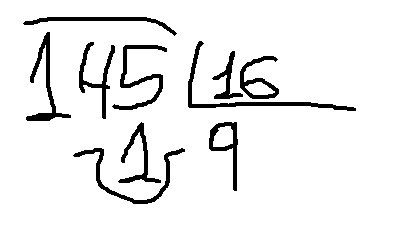 145 16
1 9